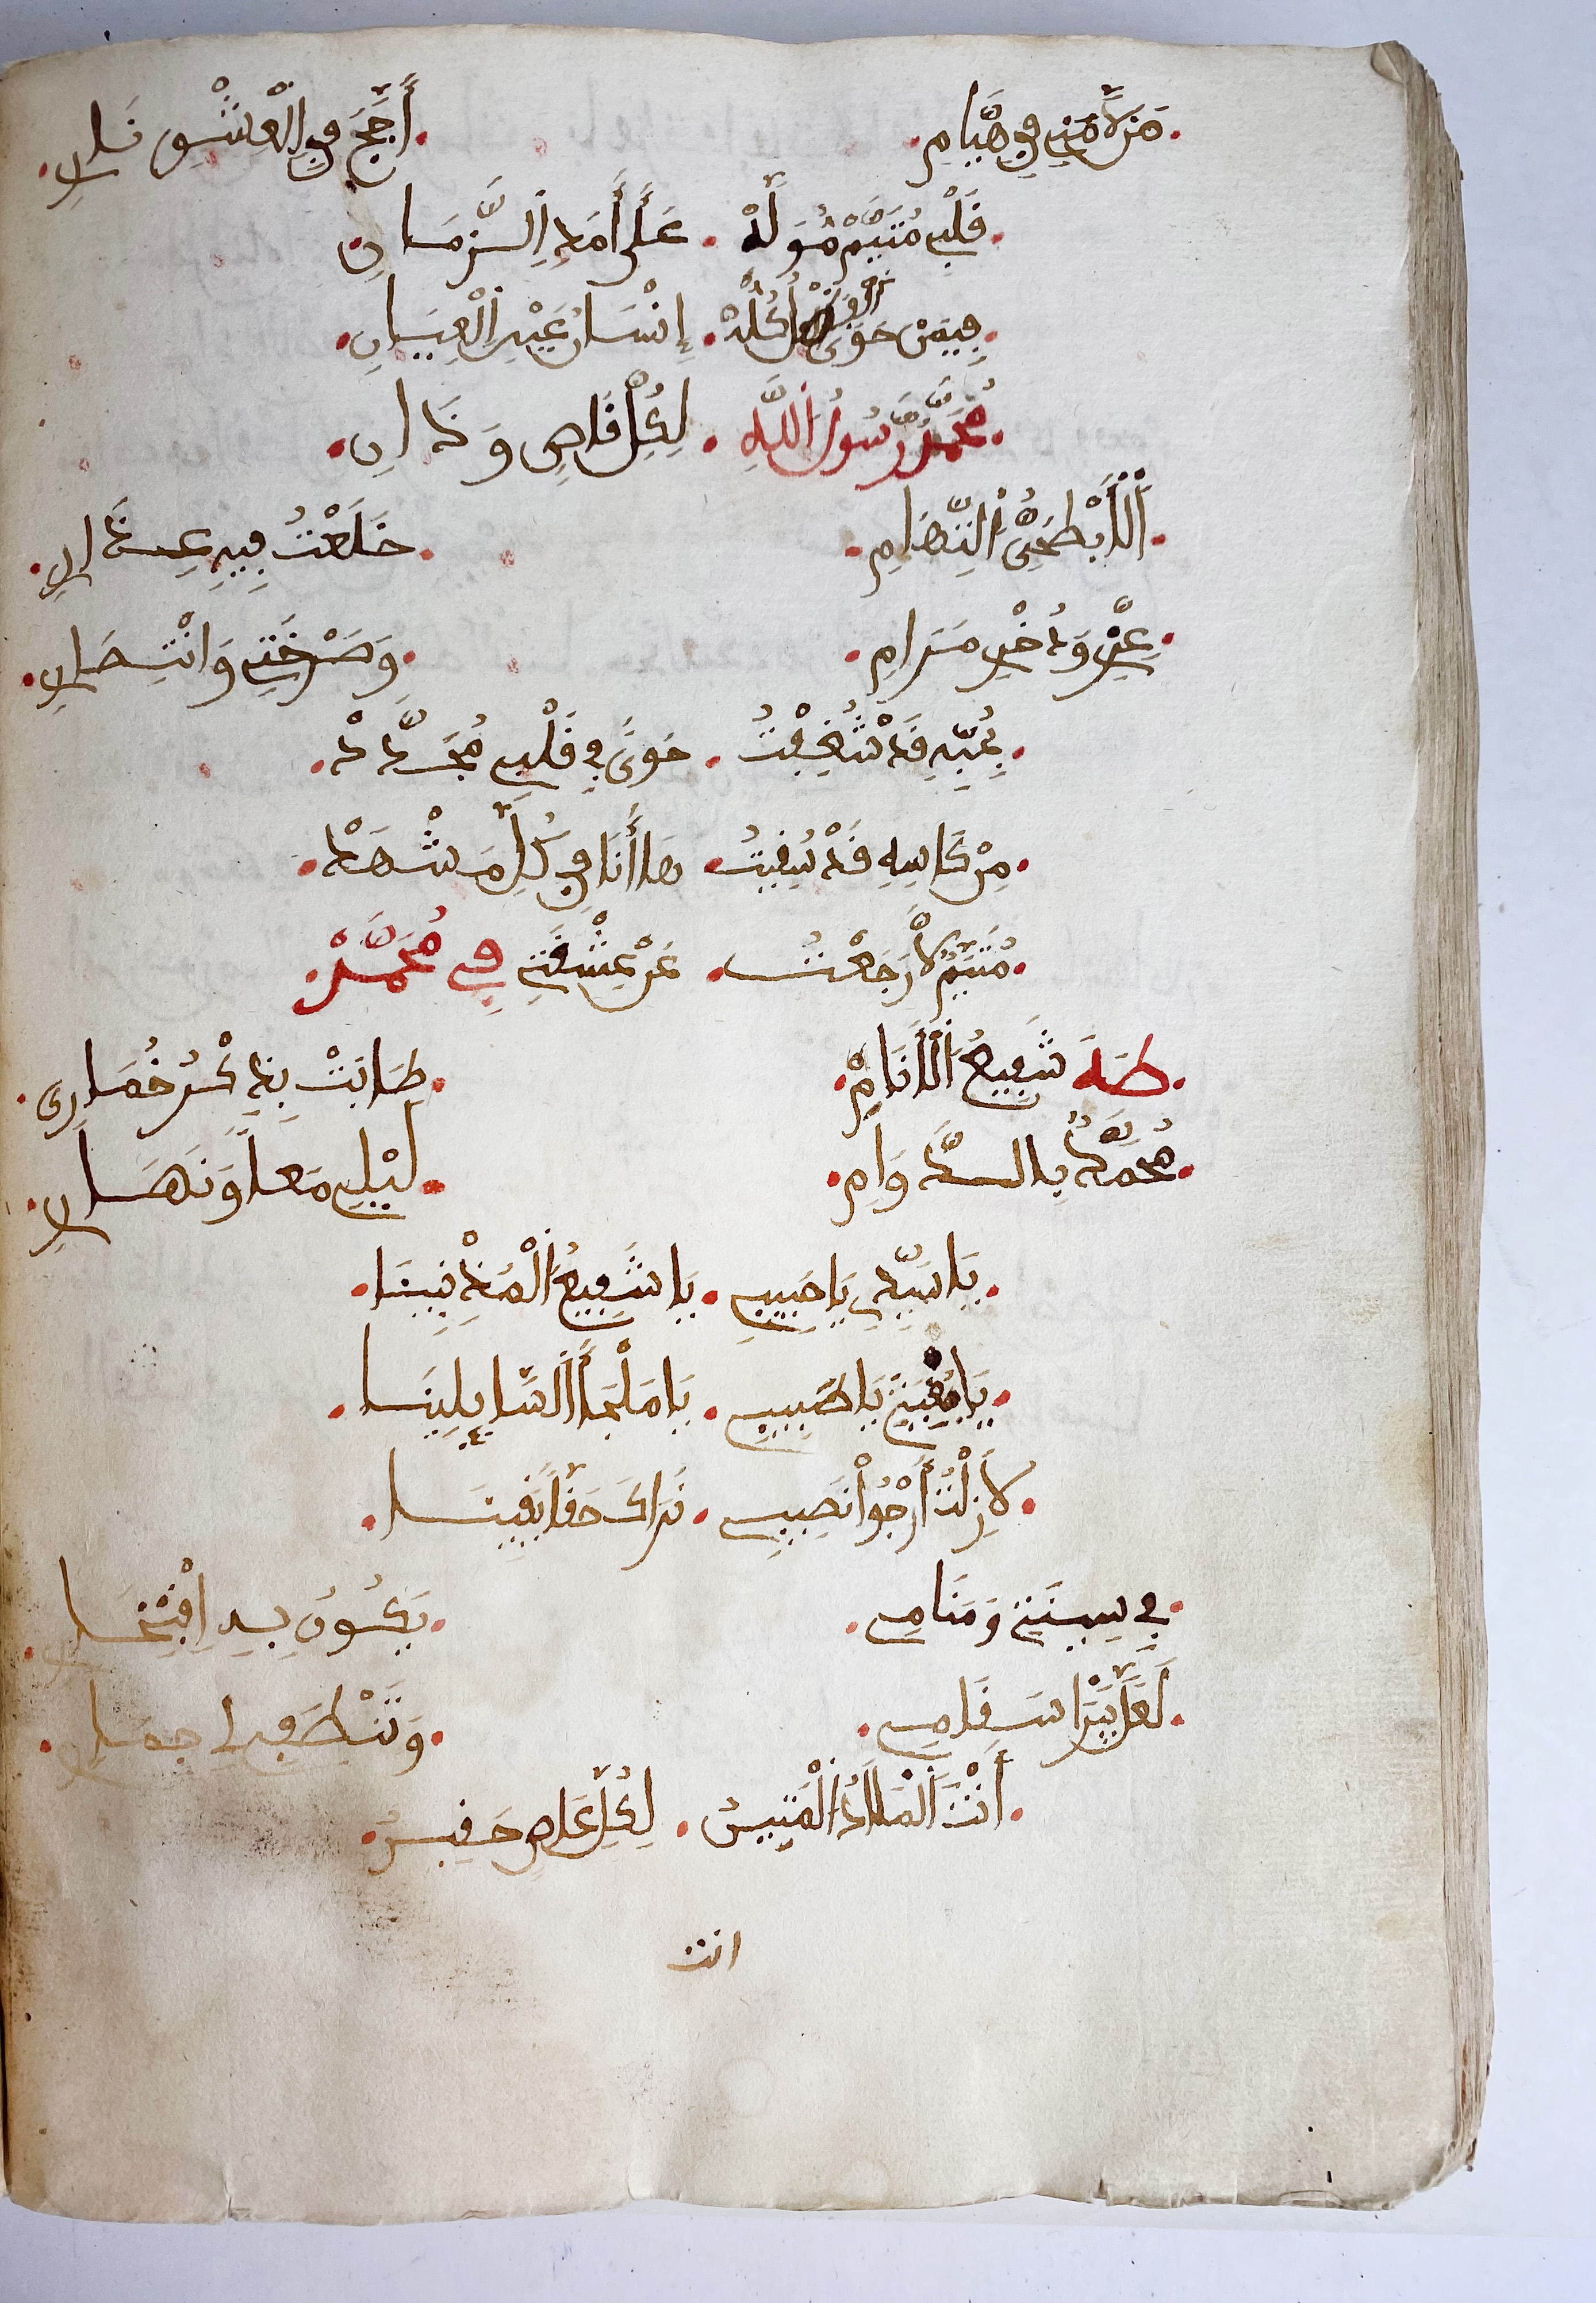 مَن لَّامَنِي فِي هُيَامِ . أَجَّجَ فِي الْعِشْقِ نَارِ
قَلْبِي مُتَيَّمْ مُوَلَّهْ . عَلَى أَمَدِ الزَّمَانِ
فِيمَنْ حَوَى كُلَّهْ . إِنْسَانُ عَيْنِ الْعِيَانِ
مُحَمَّدٌ رَّسُولُ اللَّهِ . لِكُلِّ قَاصٍ وَدَانِ
اَلْأَبْطَحِيُّ التِّهَامِ . خَلَعْتُ فِيهِ عِذَارِ
عِزِّي وَذُخْرِي مَرَامِ . وَصَرْخَتِي وَانْتِصَارِ
بِحُبِّهِ قَدْ شُغِفْتُ . حَوَى فِي قَلْبِي مُجَدَّدْ
مِنْ كَاسِهِ قَدْ سُقِيتُ . هَا أَنَا فِي كُلِّ مَشْهَدْ
مُتَيَّمٌ لَّا رَجَعْتُ . عَنْ عِشْقَتِي فِي مُحَمَّدْ
طَهَ شَفِيعُ الْأَنَامْ . طَابَتْ بِذِكْرُ خُمَارِي
مُحَمَّدٌ بِالدَّوَامِ . لَيْلِي مَعاً وَنَهَارِ
يَا سَيِّدِي يَا حَبِيبِي . يَا شَفِيعُ الْمُذْنِبِينَا
يَا مُغِيثِي يَا طَبِيبِي . يَا مَلْجَأَ السَّايِلِينَا
لَا زِلْتُ أَرْجُوا نَصِيبِي . نَرَاكَ حَقّاً يَقِينَا
فِي سِينَتِي وَمَنَامِي . يَكُونُ بِهِ افْتِخَارِ
لَعَلَّ يَبْرَا سَقَامِي . وَتَنْطَفِي لِي جِمَارِ
أَنْتَ الْمَلَاذُ الْمَتِينُ . لِكُلِّ عَاصٍ حَقِيرُ
انت